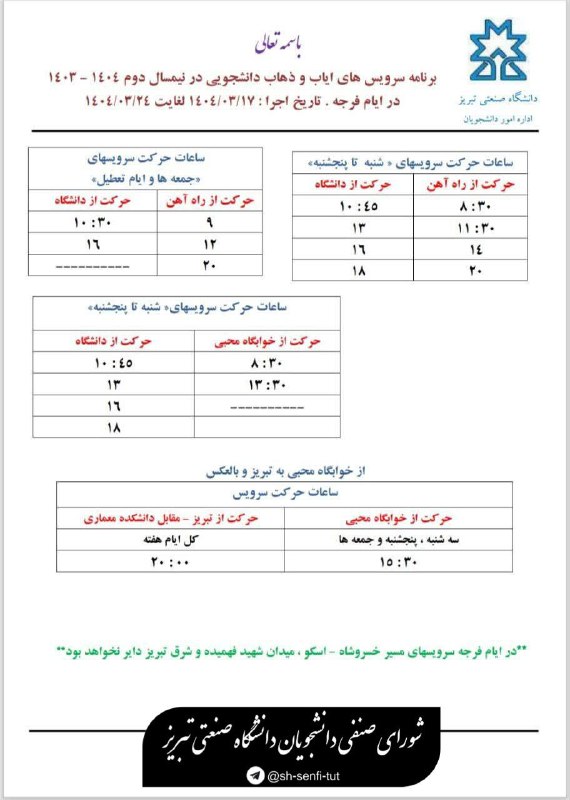 باسمه تعالی
دانشگاه صنعتی تبریز
اداره امور دانشجویان
برنامه سرویس های ایاب و ذهاب دانشجویی در نیمسال دوم ۱۴۰۴ - ۱۴۰۳
در ایام فرجه . تاریخ اجرا : ۱۴۰۴/۰۳/۱۷ لغایت ۱۴۰۴/۰۳/۲۴
ساعات حرکت سرویسهای « شنبه تا پنجشنبه»
حرکت از راه آهن حرکت از دانشگاه
۸:۳۰ ۱۰:۴۵
۱۱:۳۰ ۱۳
۱۴ ۱۶
۲۰ ۱۸
ساعات حرکت سرویسهای
«جمعه ها و ایام تعطیل»
حرکت از راه آهن حرکت از دانشگاه
۹ ۱۰:۳۰
۱۲ ۱۶
۲۰ ----------
ساعات حرکت سرویسهای« شنبه تا پنجشنبه»
حرکت از خوابگاه محبی حرکت از دانشگاه
۸:۳۰ ۱۰:۴۵
۱۳:۳۰ ۱۳
---------- ۱۶
۱۸
از خوابگاه محبی به تبریز و بالعکس
ساعات حرکت سرویس
حرکت از خوابگاه محبی حرکت از تبریز - مقابل دانشکده معماری
سه شنبه ، پنجشنبه و جمعه ها کل ایام هفته
۱۵:۳۰ ۲۰:۰۰
**در ایام فرجه سرویسهای مسیر خسروشاه - اسکو ، میدان شهید فهمیده و شرق تبریز دایر نخواهد بود**
شورای صنفی دانشجویان دانشگاه صنعتی تبریز
@sh-senfi-tut